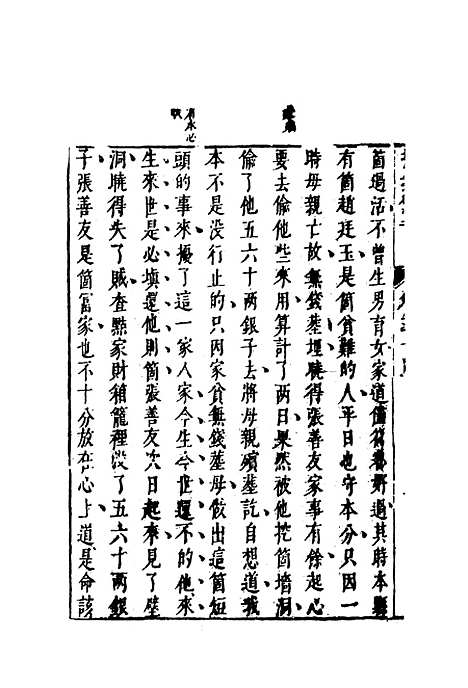 箇過活不曾生男育女家道儘富薄薄過其時本縣
有箇趙廷玉是箇貧難的人平日也守本分只因一
時母親亡故無錢塟埋曉得張善友家事有餘起心
要去偷他些來用算計了兩日果然被他挖箇墻洞
偷了他五六十兩銀子去將母親殯塟訖自想道我
本不是沒行止的只因家貧無錢塟母做出這箇短
頭的事來擾了這一家人家今生今世還不的他來
生來世是必填還他則箇張善友次日起來見了壁
洞曉得失了賊查點家財箱籠裡沒了五六十兩銀
子張善友是箇富家也不十分放在心上道是命該